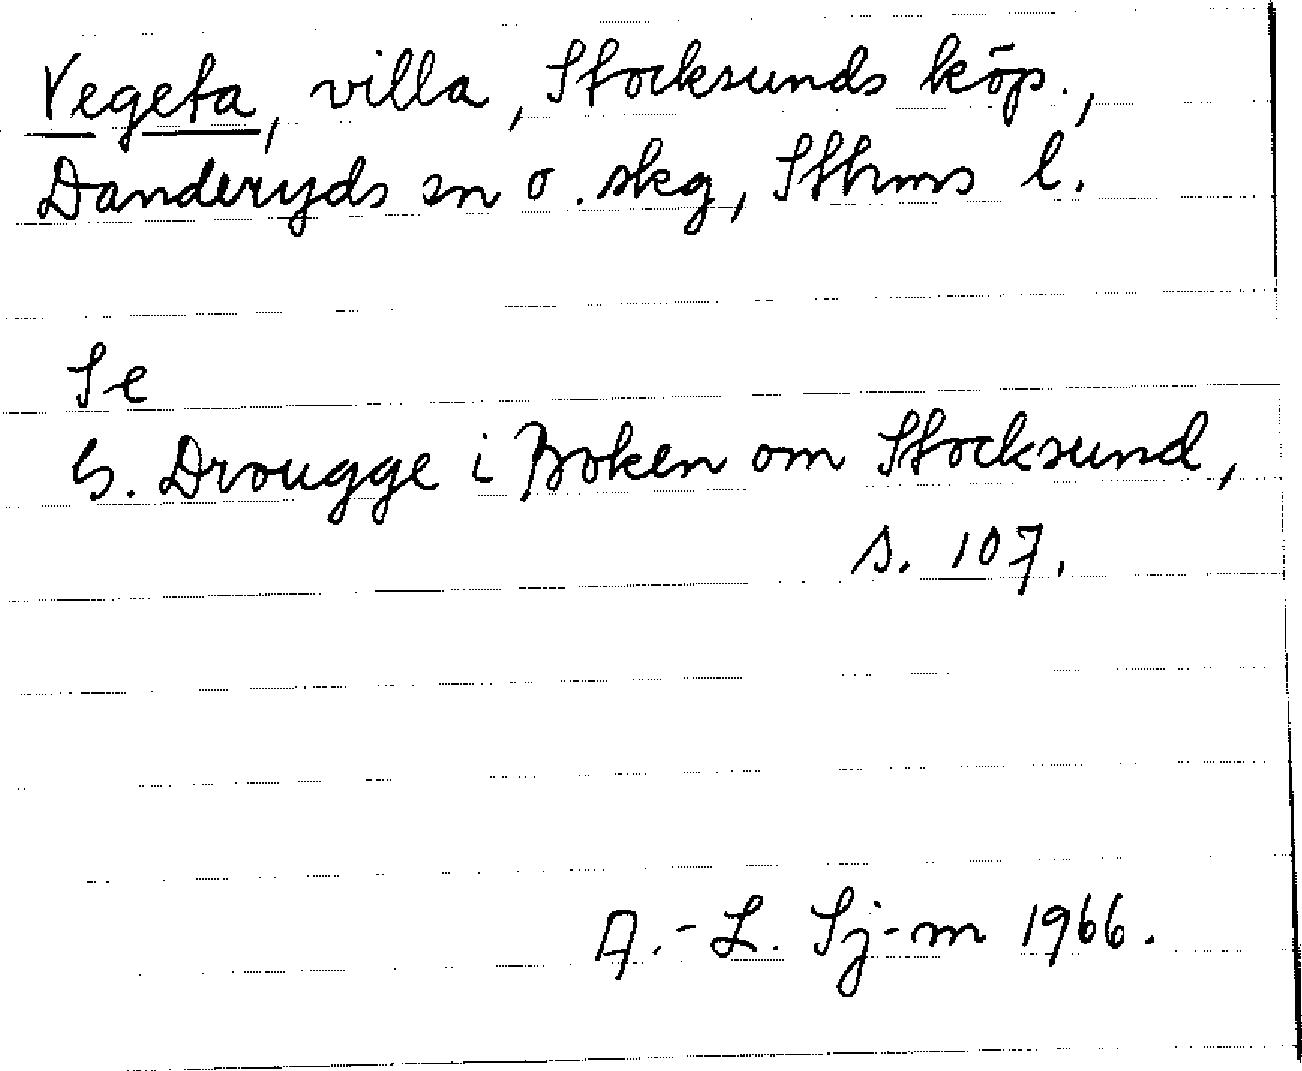 Vegeta, villa, Stocksunds köp.,
Danderyds sn o. skg, Sthms l.
Se
G. Drougge i Boken om Stocksund,
s. 107.
A.-L. Sj-m 1966.